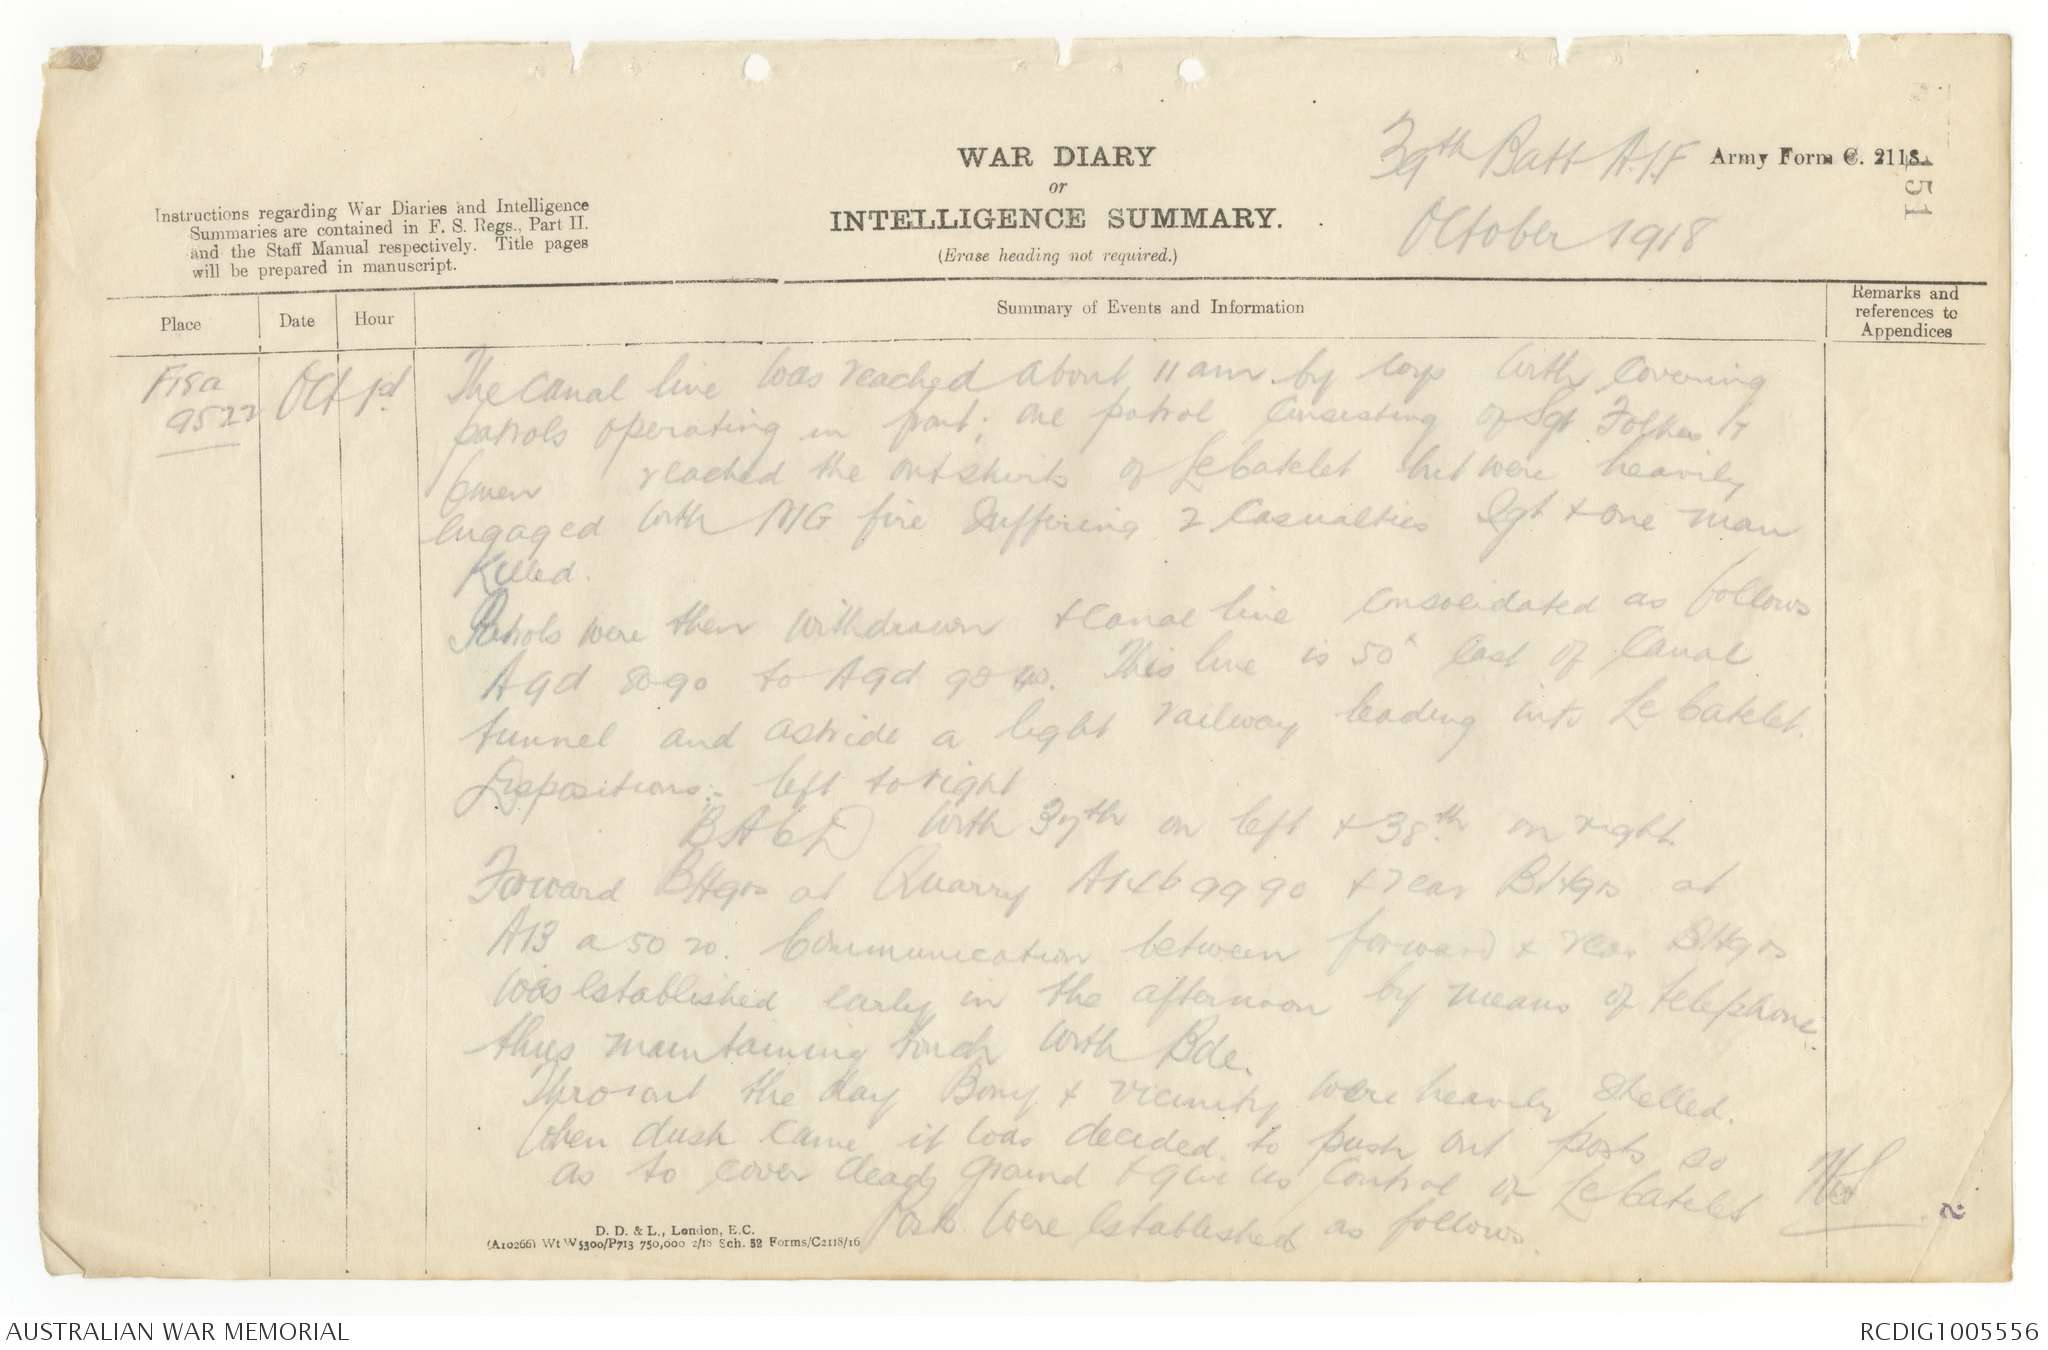 39th Batt A.I.F
Army Form C. 2118.
October 1918
151
WAR DIARY
or
INTELLIGENCE SUMMARY.
(Erase heading not required.)
Instructions regarding War Diaries and Intelligence
Summaries are contained in F. S. Regs., Part II.
and the Staff Manual respectively. Title pages
will be prepared in manuscript.
Place
Date
Hour
Summary of Events and Information
Remarks and
references to
Appendices
F18a
9522
Oct 1st
The canal line was reached about 11 am by coys with covering
patrols operating in front; one patrol consisting of Sgt &
6 men reached the outskirts of Le Catelet but were heavily
engaged with MG fire suffering 2 casualties Sgt & one man
Killed.
Patrols were then withdrawn & canal line consolidated as follows
A9d 8090 to A9d 90 40. This line is 50x East of Canal
tunnel and astride a light railway leading into Le Catelet.
Dispositions:- left to right
B A C D with 37th on left & 38th on right.
Forward BHqrs at Quarry A14b 99 90 & rear BHqrs at
A13 a 50 20. Communication between forward & rear BHqrs
was established early in the afternoon by means of telephone
thus maintaining touch with Bde.
Throout the day Bony & vicinity were heavily shelled.
When dusk came it was decided to push out posts so
as to cover dead ground & give us control of Le Catelet
Posts were established as follows.
2.
D. D. & L., London, E.C.
(A10266) Wt W5300/P713 750,000 2/18 Sch. 52 Forms/C2118/16
AUSTRALIAN WAR MEMORIAL
RCDIG1005556